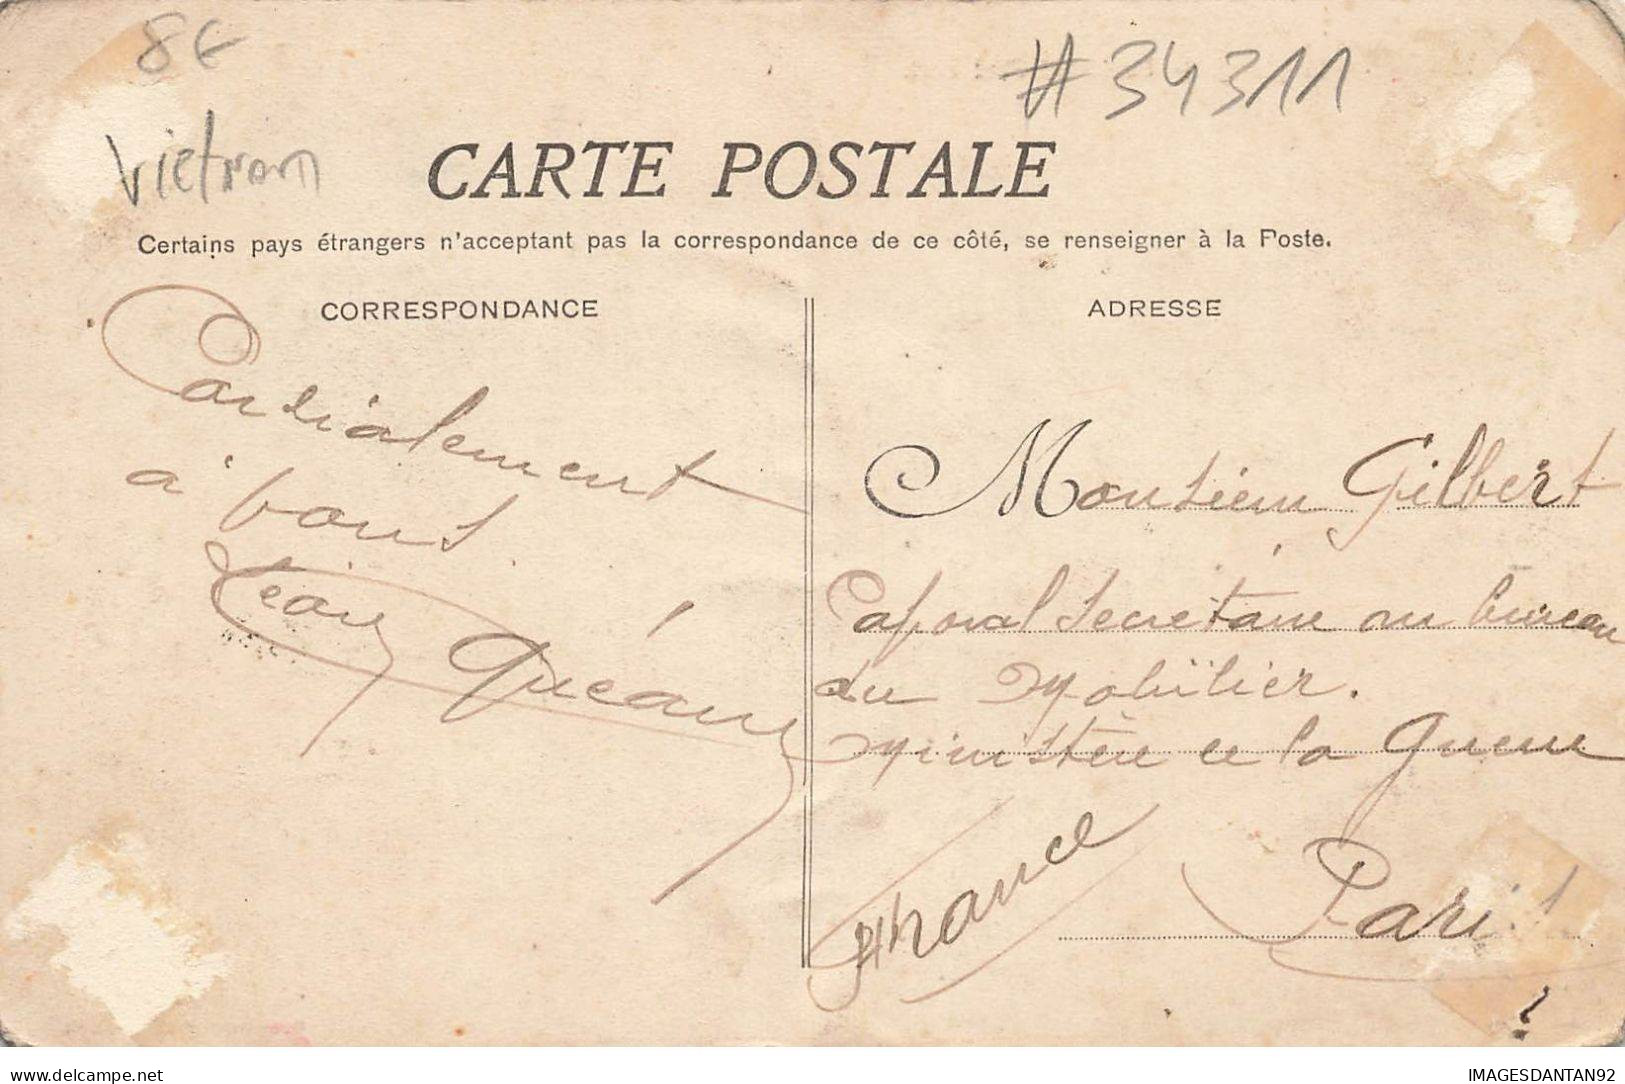 8€
#34311
Vietnam
CARTE POSTALE
Certains pays étrangers n'acceptant pas la correspondance de ce côté, se renseigner à la Poste.
CORRESPONDANCE
Cordialement
à vous
Léon Quéau
ADRESSE
Monsieur Gilbert
Caporal Secrétaire au bureau
du Mobilier.
Ministère de la Guerre
Paris
France
delcampe.net
IMAGESDANTAN92